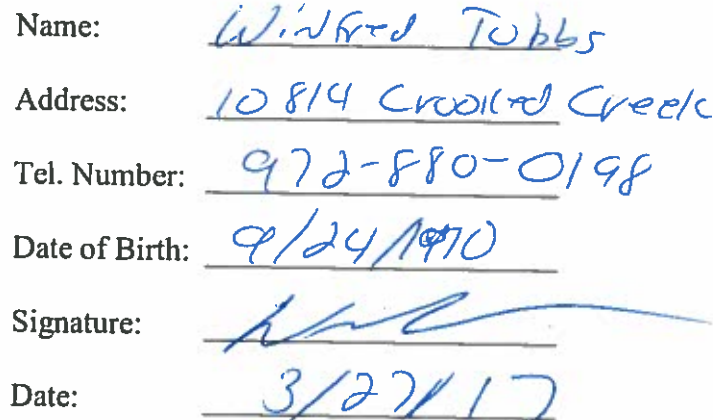 Name: Winfred Tubbs
Address: 10814 Crooked Creek
Tel. Number: 972-880-0198
Date of Birth: 9/24/1970
Signature:
Date: 3/27/17